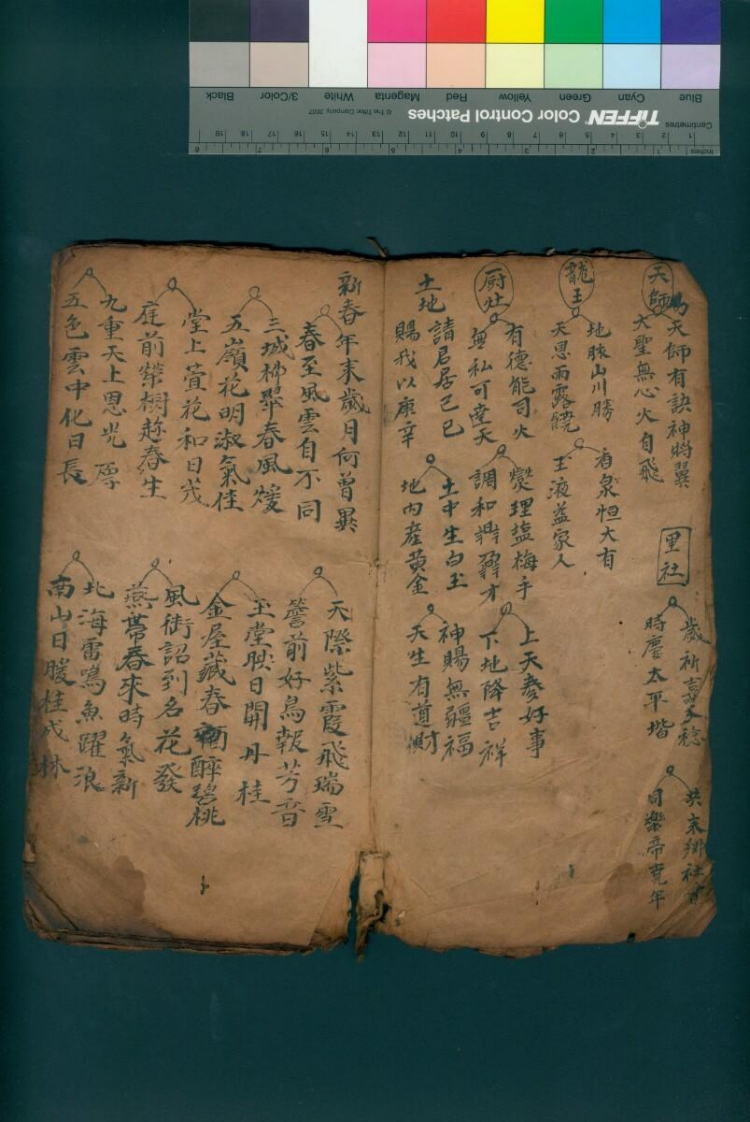 天師
天師有訣神將翼
大聖無心火自飛
里社
時麐太平堦
同樂帝堯年
龍王
地脉山川勝
天恩雨露饒
香泉恒大有
玉液益家人
厨灶
有德能司火
無私可達天
燮理塩梅手
調和鼎鼐才
上天奏好事
下地降吉祥
土地
請君居己巳
賜我以康辛
土中生白玉
地内産黃金
神賜無疆福
天生有道財
新春
年來歲月何曾異
春至風雲自不同
三城柳翠春風煖
五嶺花明淑氣佳
堂上萱花和日茂
庭前榮樹趂春生
九重天上恩光厚
五色雲中化日長
天際紫霞飛瑞雪
簷前好鳥報芳音
玉堂映日開丹桂
金屋藏春酒醉碧桃
風街詔到名花發
燕帶春來時氣新
北海雷鳴魚躍浪
南山日暖桂成林
Blue
Cyan
Green
Yellow
Red
Magenta
White
3/Color
Black
TIFFEN Color Control Patches
© The Tiffen Company, 2007
Centimetres
Inches